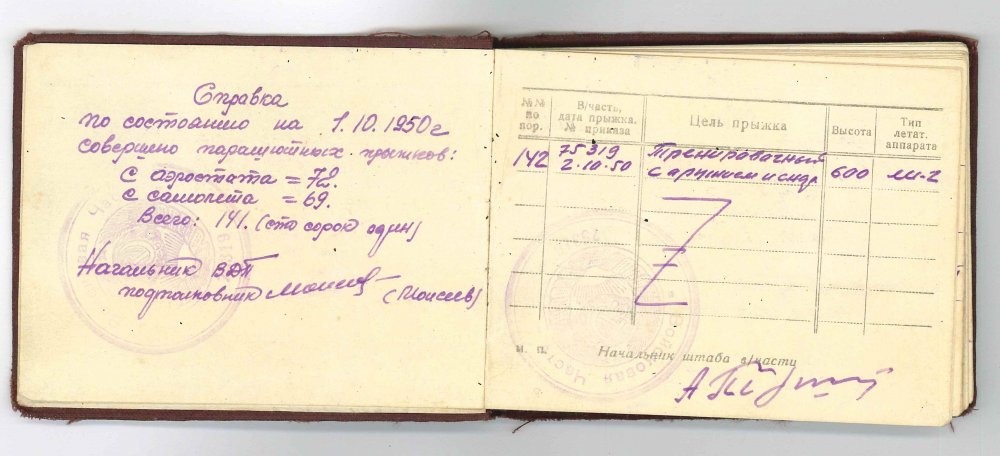 Справка
по состоянию на 1.10.1950г
совершено парашютных прыжков:
С аэростата = 72.
С самолета = 69.
Всего: 141. (сто сорок один)
Начальник ВДП
подполковник (Моисеев)
№№ по пор.
В/часть, дата прыжка, № приказа
Цель прыжка
Высота
Тип летат. аппарата
142
75319
2.10.50
Тренировочный
с оружием и
600
ли-2
м. п.
Начальник штаба в/части